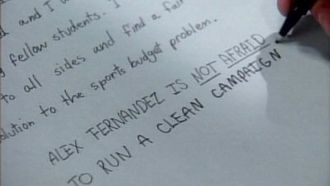 d and I w
g fellow students. I
to all sides and find a fair
olution to the sports budget problem.
ALEX FERNANDEZ IS NOT AFRAID
TO RUN A CLEAN CAMPAIGN